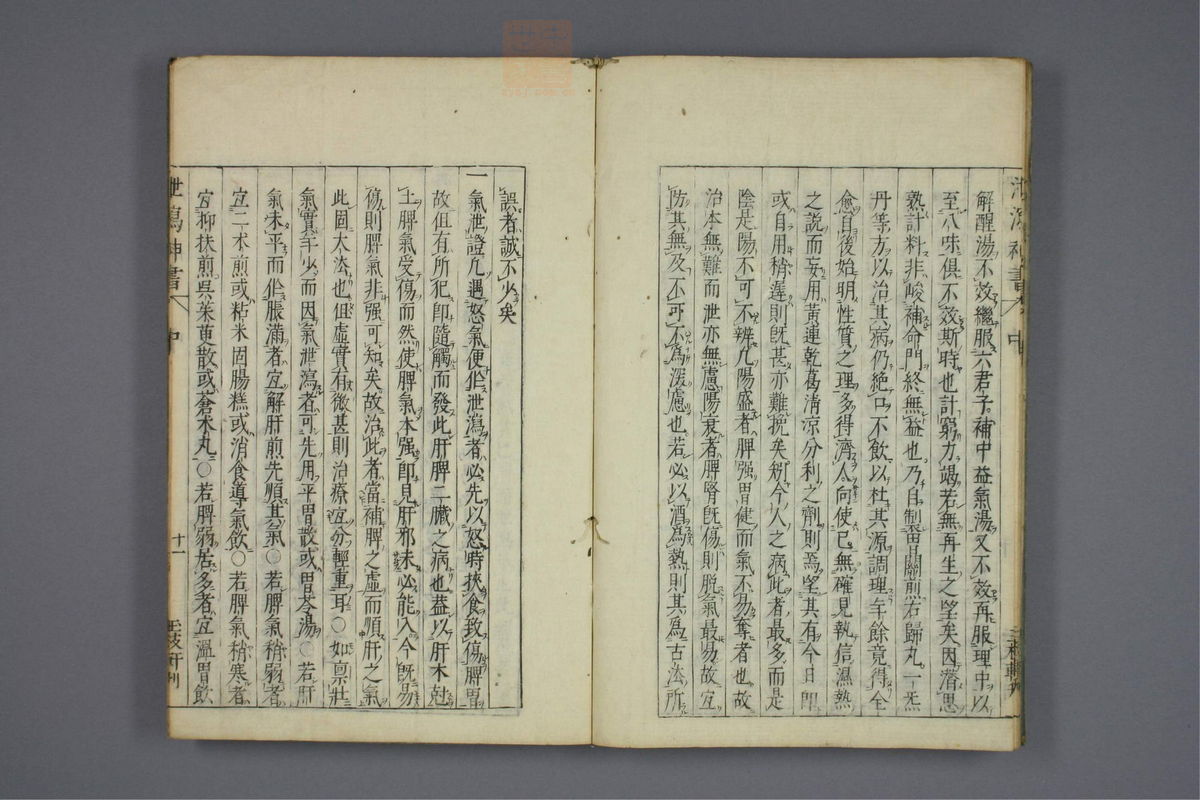 解酲湯不效繼服六君子補中益氣湯又不效再服理中以
至八味俱不效斯時也計窮力竭若無再生之望矣因潛思
熟計料非峻補命門終無益也乃自制胃關煎右歸丸一炁
丹等方以治其病仍絶口不飲以杜其源調理年餘竟得全
愈自後始明性質之理多得濟人向使己無確見執信濕熱
之說而妄用黃連乾葛清凉分利之劑則焉望其有今日即
或自用稍遲則既甚亦難挽矣矧今人之病此者最多而是
陰是陽不可不辨凡陽盛者脾强胃健而氣不易奪者也故
治本無難而泄亦無慮陽衰者脾腎既傷則脫氣最易故宜
防其無及不可不為深慮也若必以酒為熱則其為古法所
誤者誠不少矣
一氣泄證凡遇怒氣便作泄瀉者必先以怒時挾食致傷脾胃
故但有所犯即隨觸而發此肝脾二臟之病也葢以肝木尅
土脾氣受傷而然使脾氣本强即見肝邪未必能入今既易
傷則脾氣非强可知矣故治此者當補脾之虛而順肝之氣
此固大法也但虛實有微甚則治療宜分輕重耳○如禀壯
氣實年少而因氣泄瀉者可先用平胃散或胃苓湯○若肝
氣未平而作脹滿者宜解肝煎先順其氣○若脾氣稍弱者
宜二朮煎或粘米固腸糕或消食導氣飲○若脾氣稍寒者
宜抑扶煎吳茱萸散或蒼朮丸○若脾弱居多者宜溫胃飲
泄瀉神書
中
十一